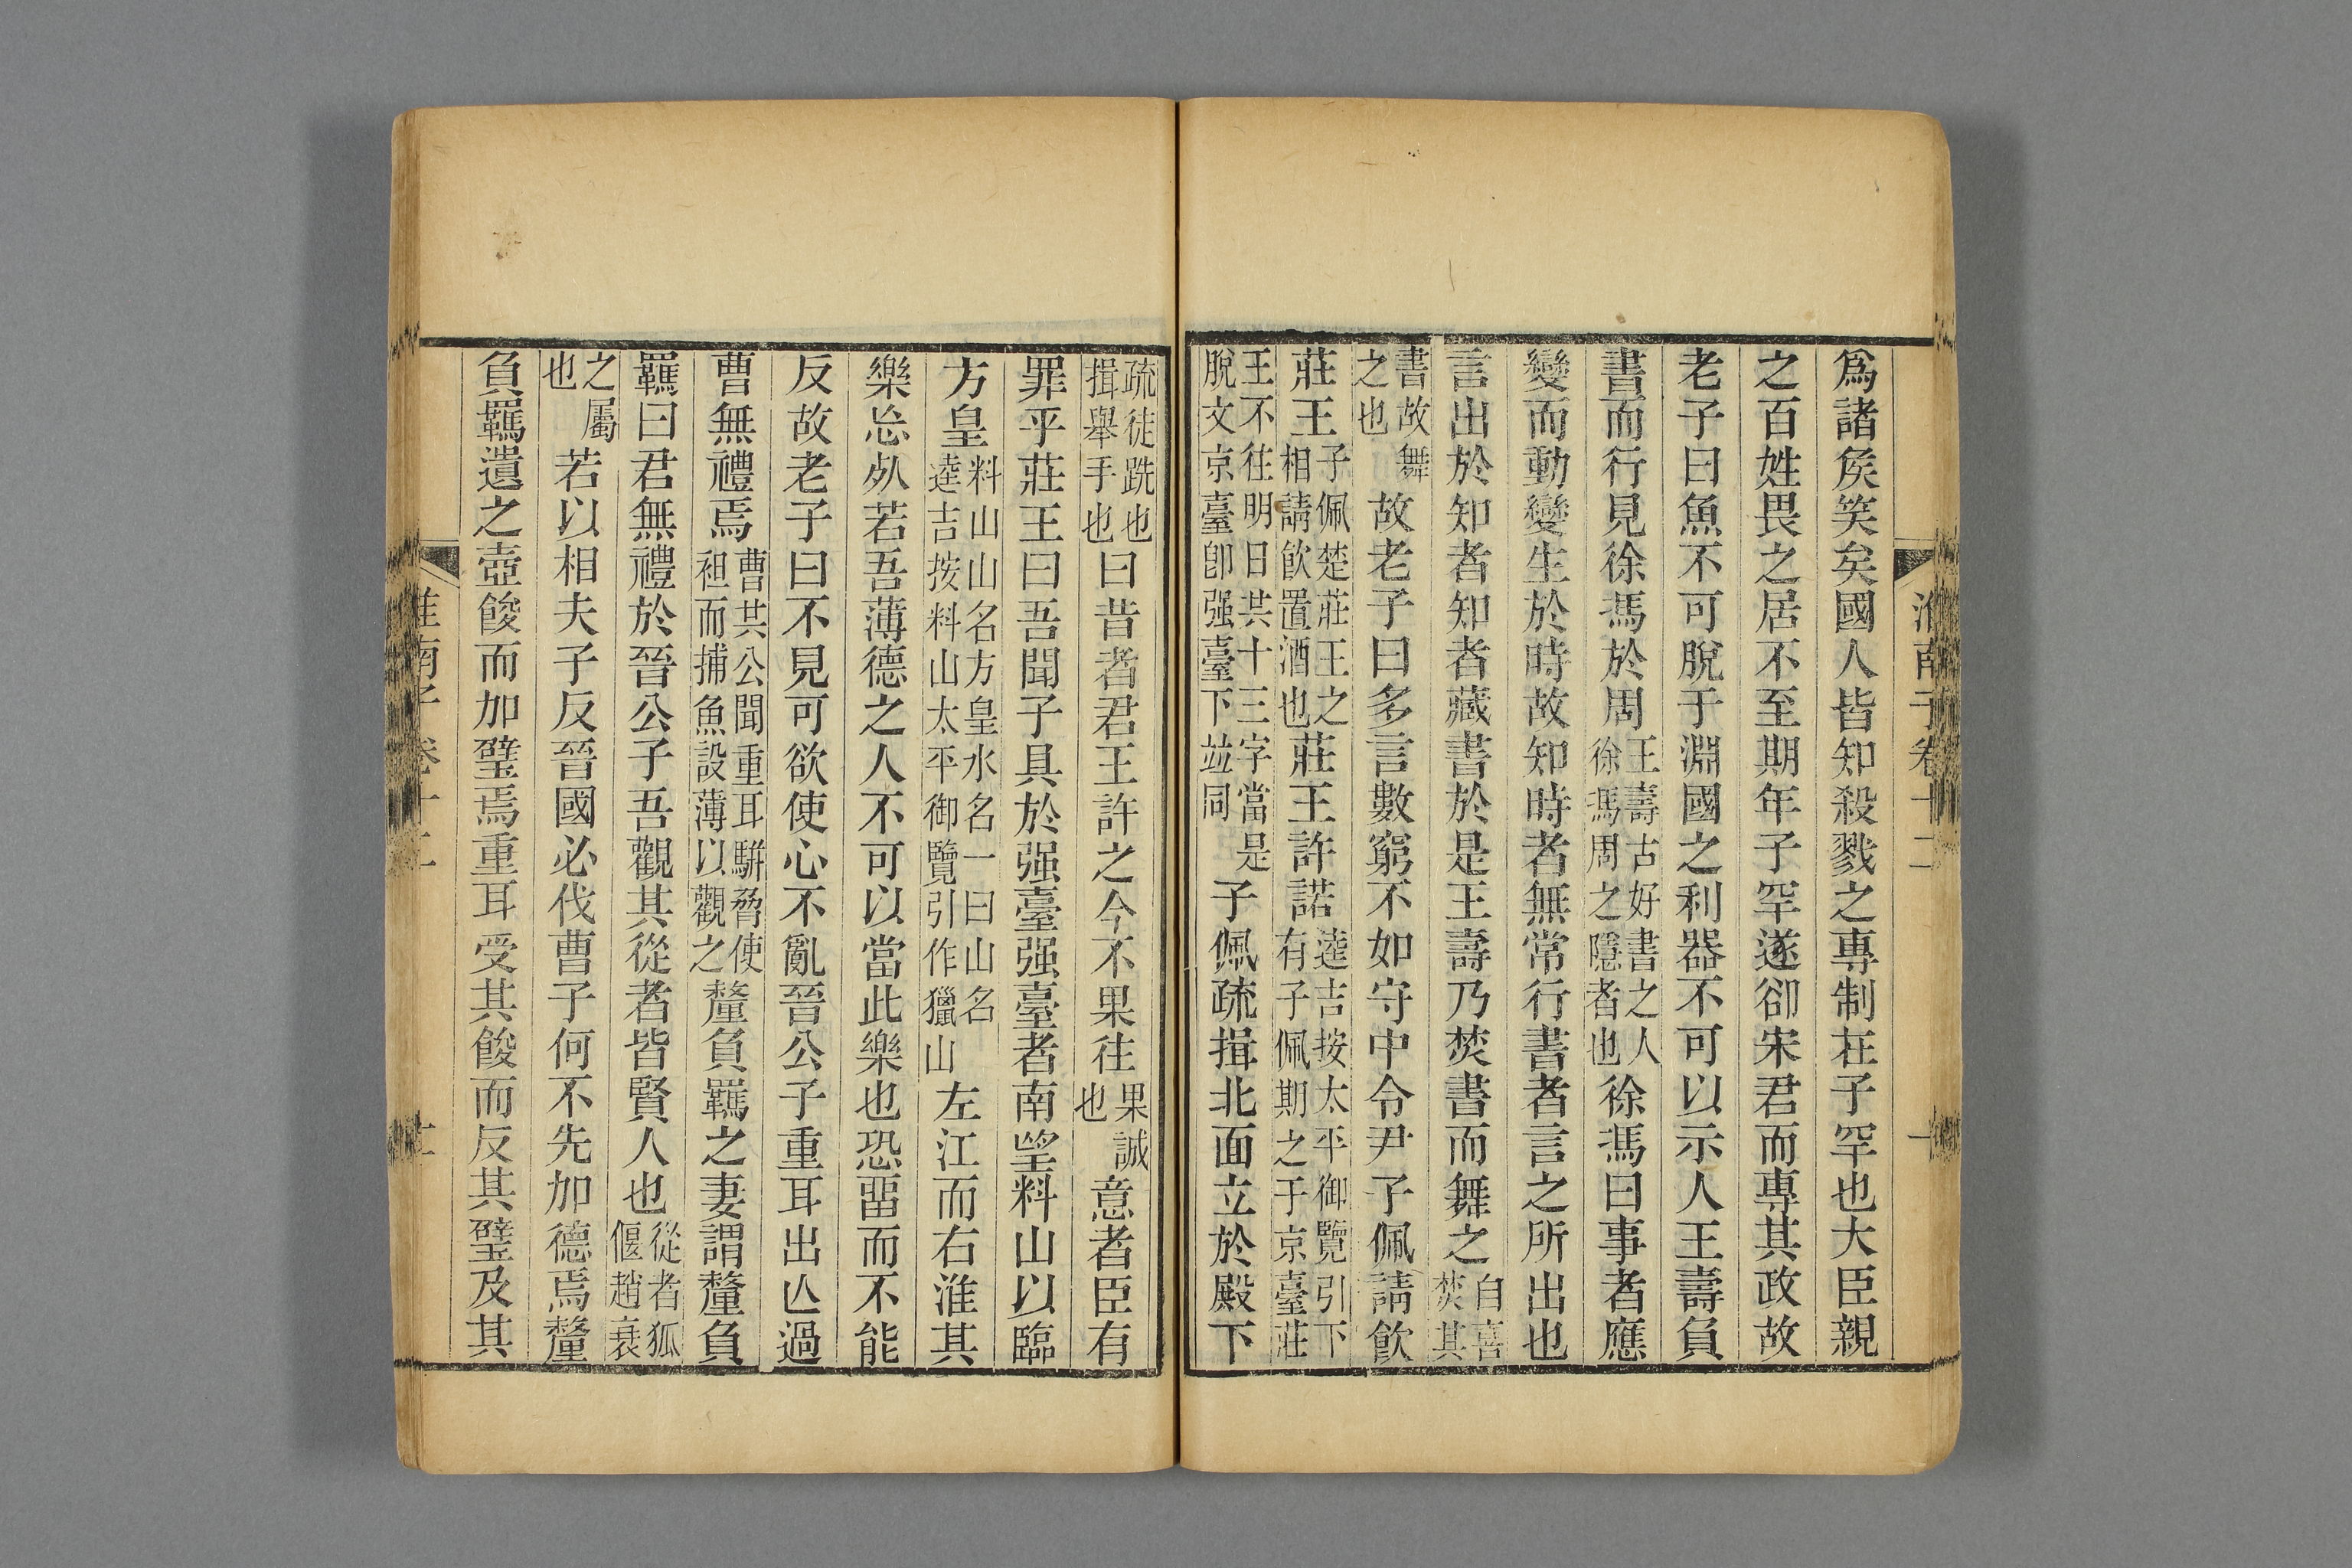 淮南子卷十二
爲諸矦笑矣國人皆知殺戮之專制在子罕也大臣親
之百姓畏之居不至期年子罕遂卻宋君而專其政故
老子曰魚不可脫于淵國之利器不可以示人王壽負
書而行見徐馮於周王壽古好書之人徐馮周之隱者也徐馮曰事者應
變而動變生於時故知時者無常行書者言之所出也
言出於知者知者藏書於是王壽乃焚書而舞之自喜焚其
書故舞之也故老子曰多言數窮不如守中令尹子佩請飮
莊王子佩楚莊王之相請飮置酒也莊王許諾逵吉按太平御覽引下有子佩期之于京臺莊
王不往明日共十三字當是脫文京臺卽强臺下竝同子佩疏揖北面立於殿下
疏徒跣也揖舉手也曰昔者君王許之今不果往果誠也意者臣有
罪乎莊王曰吾聞子具於强臺强臺者南望料山以臨
方皇料山山名方皇水名一曰山名逵吉按料山太平御覽引作獵山左江而右淮其
樂忘𣦸若吾薄德之人不可以當此樂也恐畱而不能
反故老子曰不見可欲使心不亂晉公子重耳出亾過
曹無禮焉曹共公聞重耳駢脅使袒而捕魚設薄以觀之釐負羈之妻謂釐負
羈曰君無禮於晉公子吾觀其從者皆賢人也從者狐偃趙衰
之屬也若以相夫子反晉國必伐曹子何不先加德焉釐
負羈遺之壺餕而加璧焉重耳受其餕而反其璧及其
淮南子卷十二